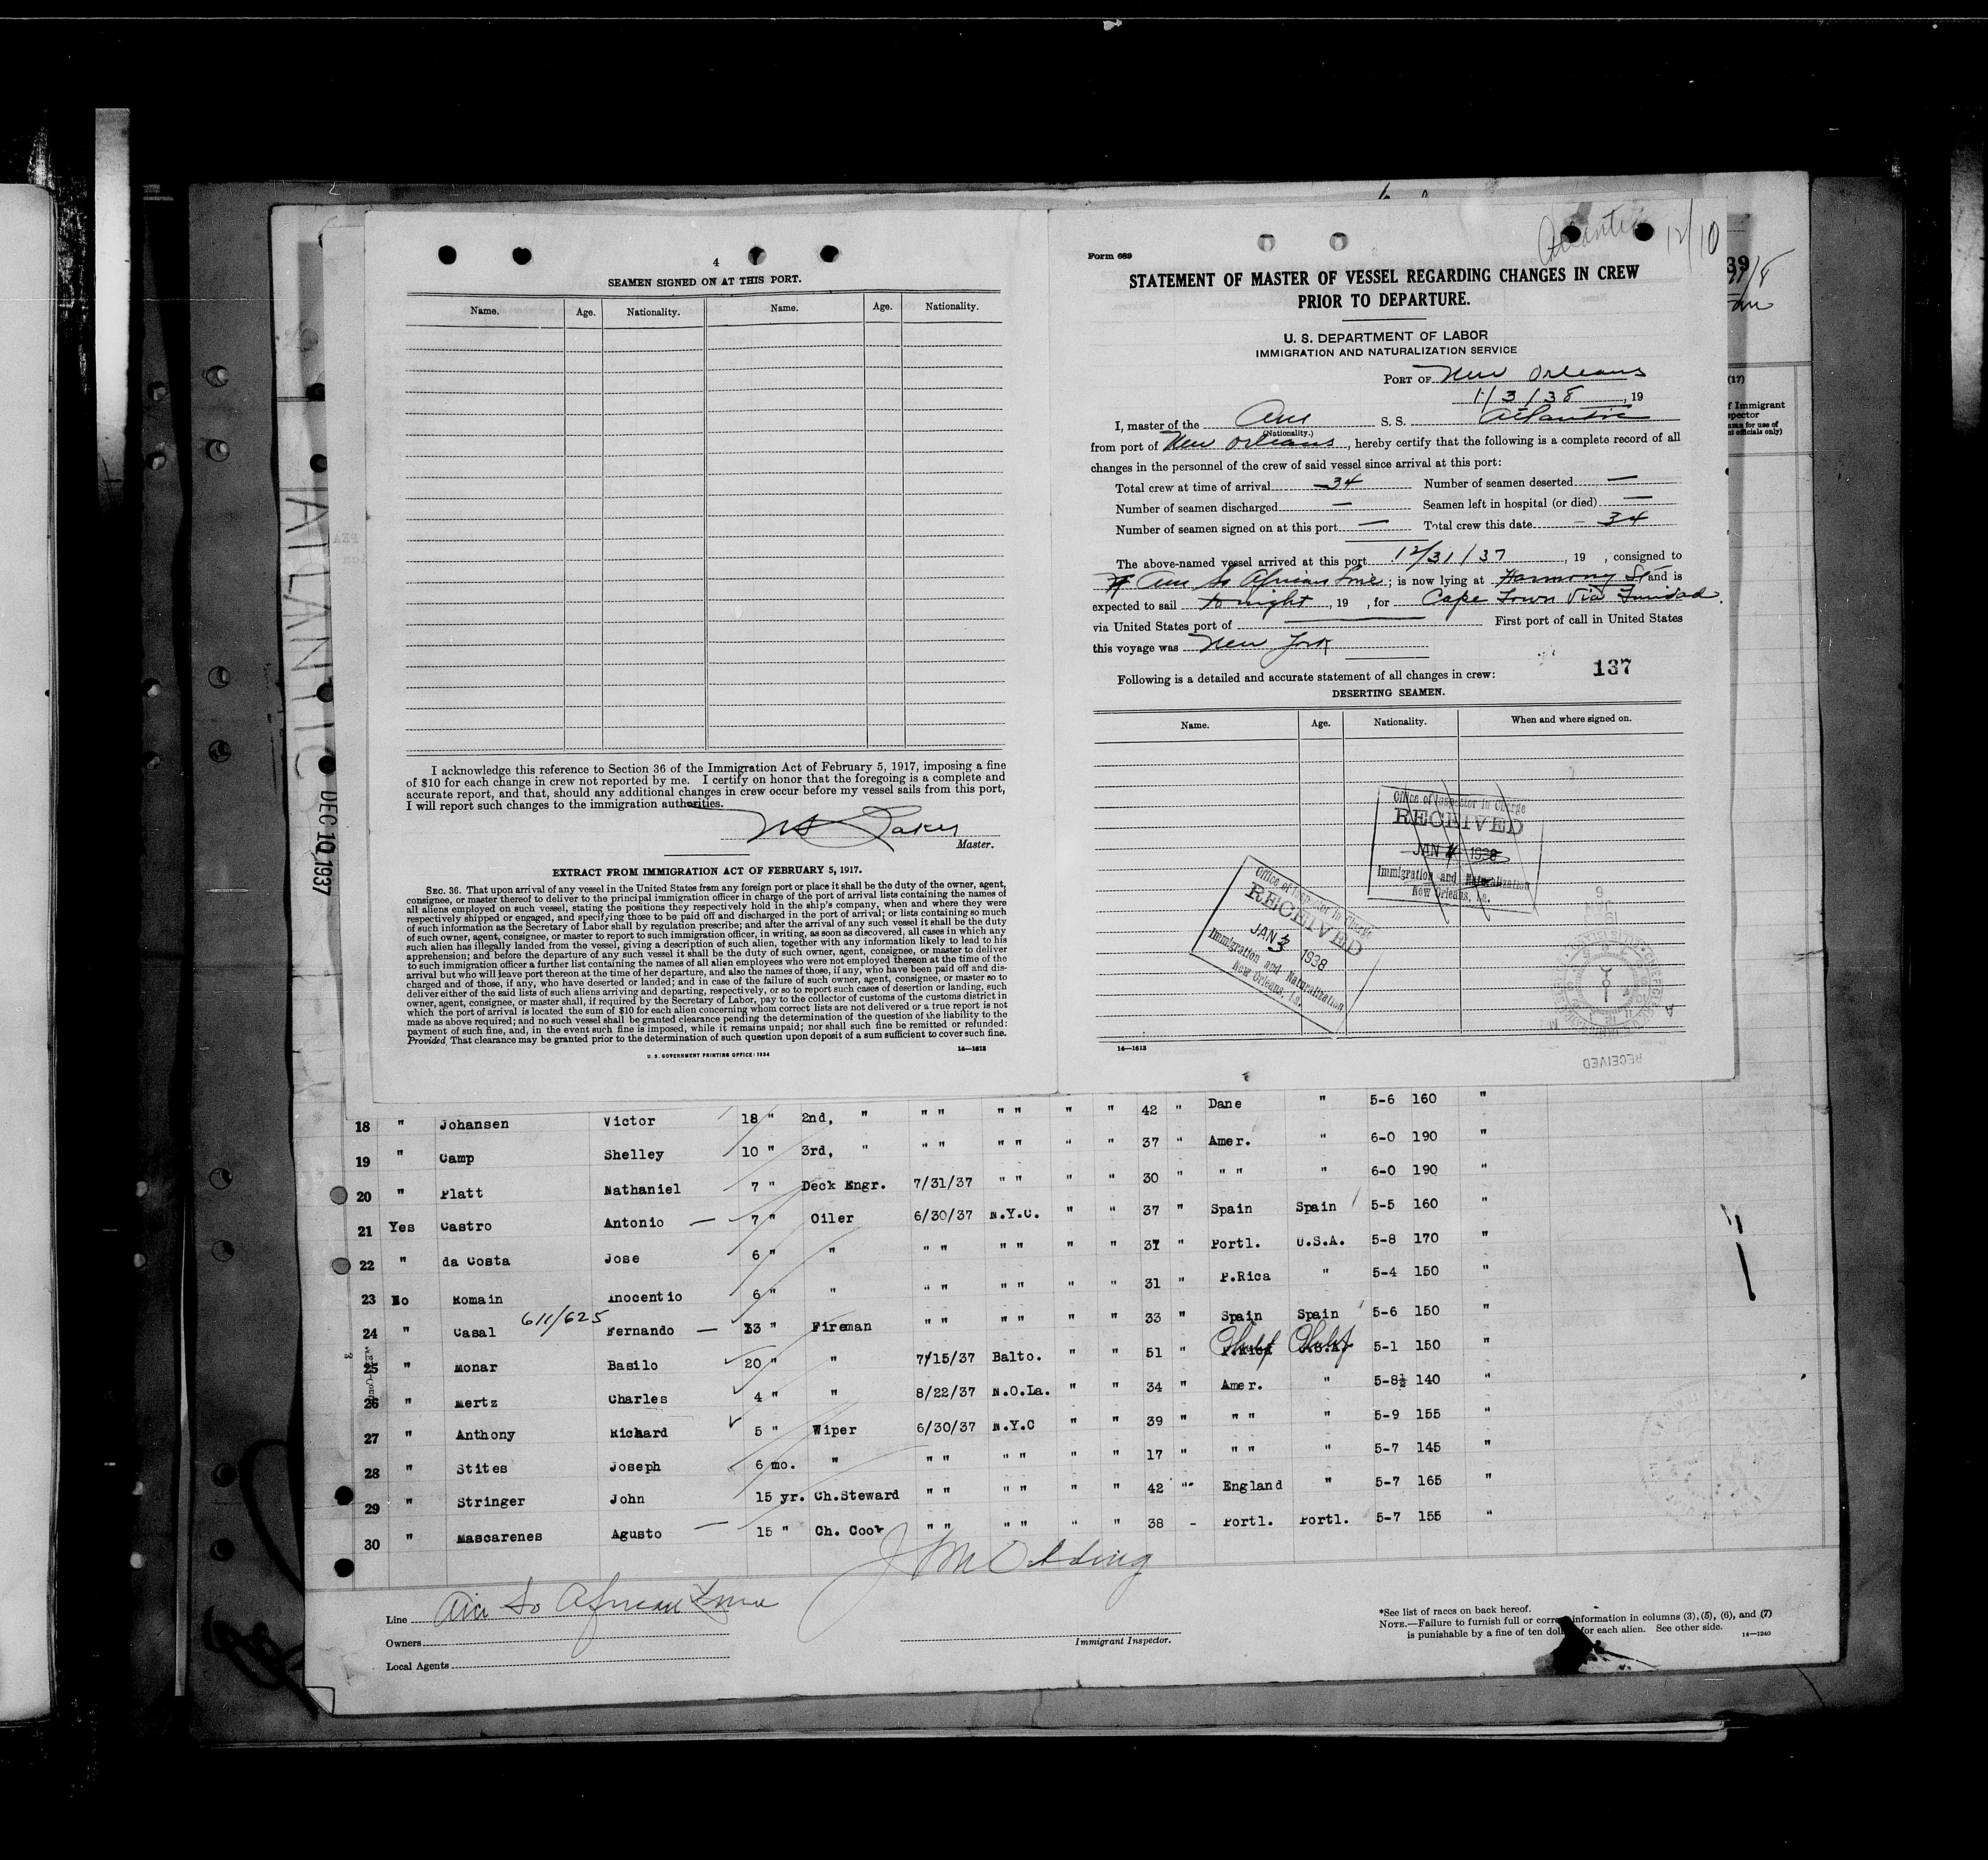 4
SEAMEN SIGNED ON AT THIS PORT.
Name. Age. Nationality. Name. Age. Nationality.
I acknowledge this reference to Section 36 of the Immigration Act of February 5, 1917, imposing a fine
of $10 for each change in crew not reported by me. I certify on honor that the foregoing is a complete and
accurate report, and that, should any additional changes in crew occur before my vessel sails from this port,
I will report such changes to the immigration authorities.
Master.
EXTRACT FROM IMMIGRATION ACT OF FEBRUARY 5, 1917.
SEC. 36. That upon arrival of any vessel in the United States from any foreign port or place it shall be the duty of the owner, agent,
consignee, or master thereof to deliver to the principal immigration officer in charge of the port of arrival lists containing the names of
all aliens employed on such vessel, stating the positions they respectively hold in the ship's company, when and where they were
respectively shipped or engaged, and specifying those to be paid off and discharged in the port of arrival; or lists containing so much
of such information as the Secretary of Labor shall by regulation prescribe; and after the arrival of any such vessel it shall be the duty
of such owner, agent, consignee, or master to report to such immigration officer, in writing, as soon as discovered, all cases in which any
such alien has illegally landed from the vessel, giving a description of such alien, together with any information likely to lead to his
apprehension; and before the departure of any such vessel it shall be the duty of such owner, agent, consignee, or master to deliver
to such immigration officer a further list containing the names of all alien employees who were not employed thereon at the time of the
arrival but who will leave port thereon at the time of her departure, and also the names of those, if any, who have been paid off and dis-
charged and of those, if any, who have deserted or landed; and in case of the failure of such owner, agent, consignee, or master so to
deliver either of the said lists of such aliens arriving and departing, respectively, or so to report such cases of desertion or landing, such
owner, agent, consignee, or master shall, if required by the Secretary of Labor, pay to the collector of customs of the customs district in
which the port of arrival is located the sum of $10 for each alien concerning whom correct lists are not delivered or a true report is not
made as above required; and no such vessel shall be granted clearance pending the determination of the question of the liability to the
payment of such fine, and, in the event such fine is imposed, while it remains unpaid; nor shall such fine be remitted or refunded:
Provided, That clearance may be granted prior to the determination of such question upon deposit of a sum sufficient to cover such fine.
U. S. GOVERNMENT PRINTING OFFICE: 1934 14—1613
Atlantic 12/10
Form 689
STATEMENT OF MASTER OF VESSEL REGARDING CHANGES IN CREW
PRIOR TO DEPARTURE.
U. S. DEPARTMENT OF LABOR
IMMIGRATION AND NATURALIZATION SERVICE
PORT OF New Orleans
1/3/38, 19
I, master of the Am S. S. Atlantic
(Nationality.)
from port of New Orleans, hereby certify that the following is a complete record of all
changes in the personnel of the crew of said vessel since arrival at this port:
Total crew at time of arrival 34 Number of seamen deserted —
Number of seamen discharged — Seamen left in hospital (or died) —
Number of seamen signed on at this port — Total crew this date — 34
The above-named vessel arrived at this port 12/31/37, 19 , consigned to
Am So African Line; is now lying at Harmony St and is
expected to sail tonight, 19 , for Cape Town Via Trinidad.
via United States port of —— First port of call in United States
this voyage was New York
137
Following is a detailed and accurate statement of all changes in crew:
DESERTING SEAMEN.
Name. Age. Nationality. When and where signed on.
Office of Inspector in Charge
RECEIVED
JAN 4 1938
Immigration and Naturalization
New Orleans, La.
Office of Inspector in Charge
RECEIVED
JAN 3 1938
Immigration and Naturalization
New Orleans, La.
RECEIVED
14—1613
39
(17)
f Immigrant
spector
officials only)
ATLANTIC
DEC 10 1937
18 " Johansen Victor 18 " 2nd, " " " " " " " 42 " Dane " 5-6 160 "
19 " Camp Shelley 10 " 3rd, " " " " " " " 37 " Amer. " 6-0 190 "
20 " Platt Nathaniel 7 " Deck Engr. 7/31/37 " " " " 30 " " " " 6-0 190 "
21 Yes Castro Antonio — 7 " Oiler 6/30/37 N.Y.C. " " 37 " Spain Spain 5-5 160 "
22 " da Costa Jose 6 " " " " " " " " 37 " Portl. U.S.A. 5-8 170 "
23 No Romain Inocentio 6 " " " " " " " " 31 " P.Rica " 5-4 150 "
24 " Casal 611/625 Fernando — 13 " Fireman " " " " " " 33 " Spain Spain 5-6 150 "
25 " Monar Basilo 20 " " 7/15/37 Balto. " " 51 " 5-1 150 "
26 " Mertz Charles 4 " " 8/22/37 N.O.La. " " 34 " Amer. " 5-8½ 140 "
27 " Anthony Richard 5 " Wiper 6/30/37 N.Y.C " " 39 " " " " 5-9 155 "
28 " Stites Joseph 6 mo. " " " " " " " 17 " " " " 5-7 145 "
29 " Stringer John 15 yr. Ch.Steward " " " " " " 42 " England " 5-7 165 "
30 " Mascarenes Agusto — 15 " Ch. Cook " " " " " " 38 - Portl. Portl. 5-7 155 "
Line Am So African Line
Owners
Local Agents
Immigrant Inspector.
*See list of races on back hereof.
NOTE.—Failure to furnish full or correct information in columns (3), (5), (6), and (7)
is punishable by a fine of ten dollars for each alien. See other side. 14—1240